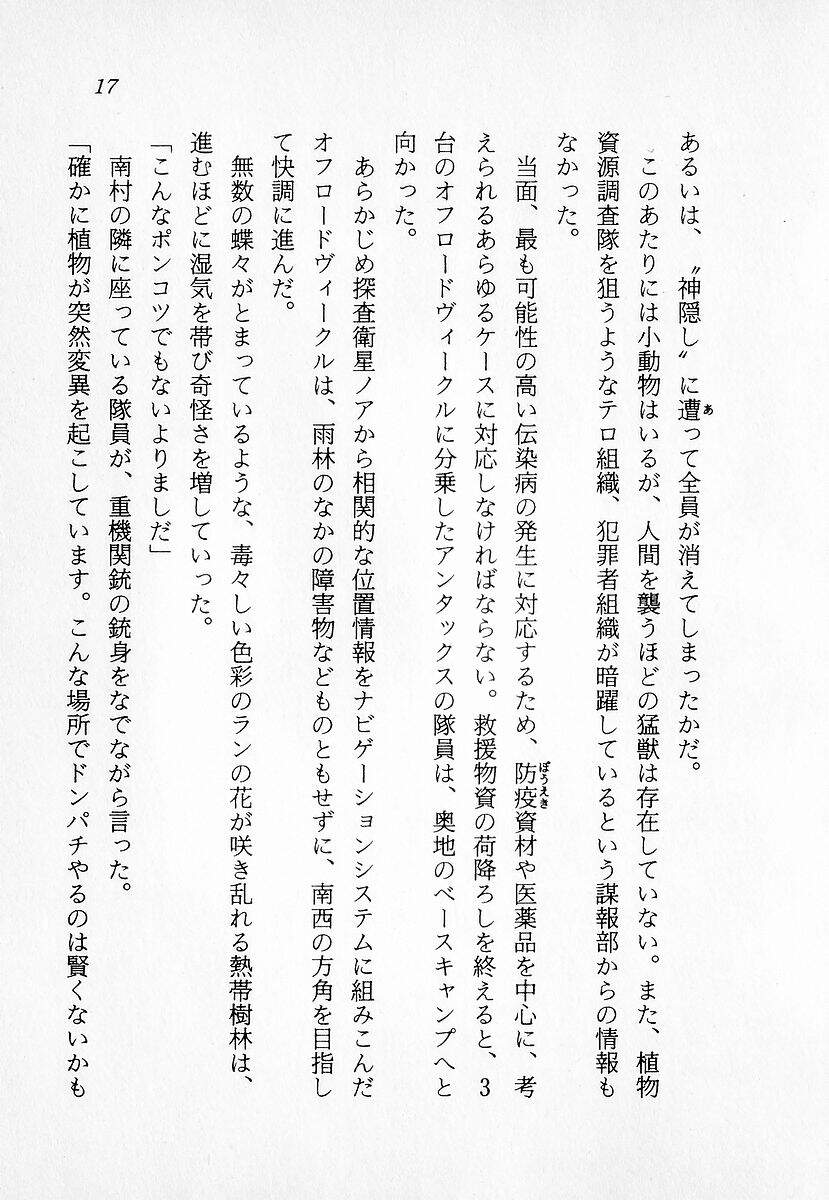 17
あるいは、〝神隠し〟に遭って全員が消えてしまったかだ。
このあたりには小動物はいるが、人間を襲うほどの猛獣は存在していない。また、植物
資源調査隊を狙うようなテロ組織、犯罪者組織が暗躍しているという謀報部からの情報も
なかった。
当面、最も可能性の高い伝染病の発生に対応するため、防疫資材や医薬品を中心に、考
えられるあらゆるケースに対応しなければならない。救援物資の荷降ろしを終えると、3
台のオフロードヴィークルに分乗したアンタックスの隊員は、奥地のベースキャンプへと
向かった。
あらかじめ探査衛星ノアから相関的な位置情報をナビゲーションシステムに組みこんだ
オフロードヴィークルは、雨林のなかの障害物などものともせずに、南西の方角を目指し
て快調に進んだ。
無数の蝶々がとまっているような、毒々しい色彩のランの花が咲き乱れる熱帯樹林は、
進むほどに湿気を帯び奇怪さを増していった。
「こんなポンコツでもないよりましだ」
南村の隣に座っている隊員が、重機関銃の銃身をなでながら言った。
「確かに植物が突然変異を起こしています。こんな場所でドンパチやるのは賢くないかも